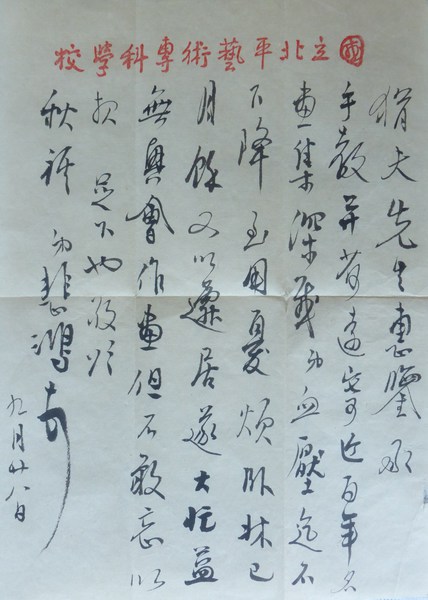 國立北平藝術專科學校
犹夫先生惠鑒承
手教并荷遠寄近百年名
畫集深感弟血壓迄不
下降至用憂煩臥牀已
月餘又以遷居遂大忙益
無興會作畫但不敢忘以
報足下也敬頌
秋祺弟悲鴻頓首
九月廿八日